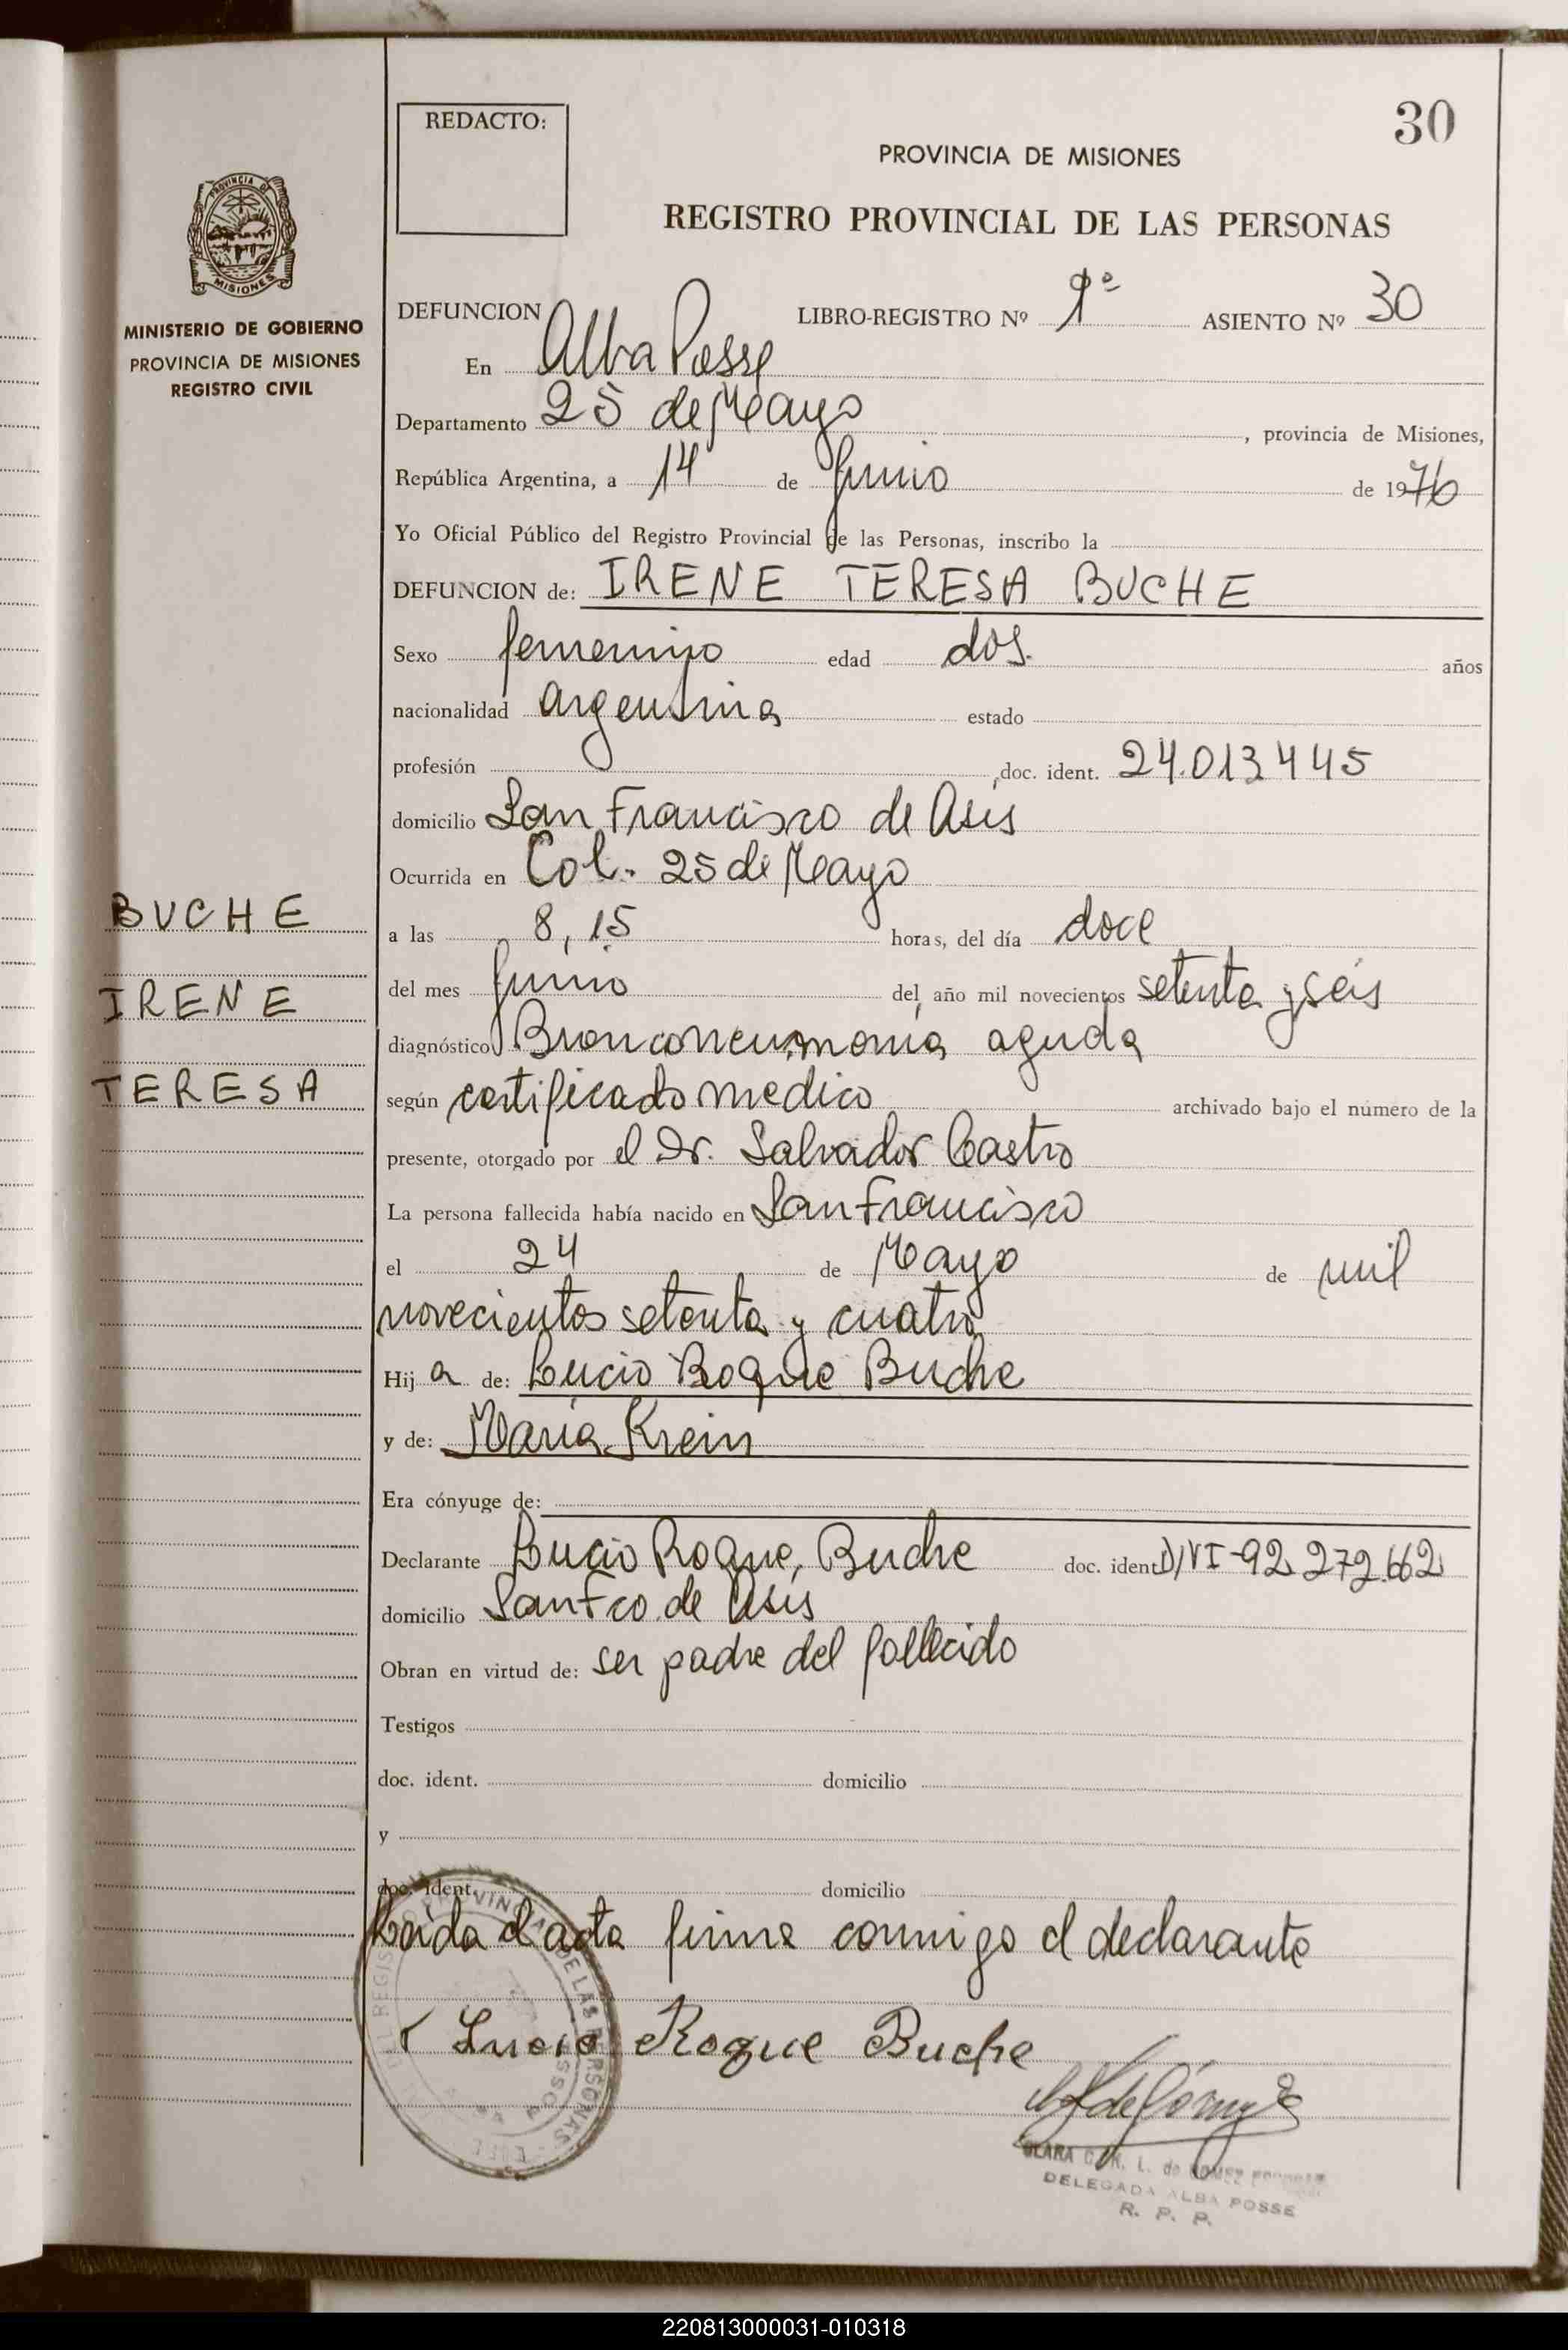 30
REDACTO:
PROVINCIA DE MISIONES
REGISTRO PROVINCIAL DE LAS PERSONAS
PROVINCIA DE
MISIONES
MINISTERIO DE GOBIERNO
PROVINCIA DE MISIONES
REGISTRO CIVIL
DEFUNCION LIBRO-REGISTRO Nº 1º ASIENTO Nº 30
En Alba Posse
Departamento 25 de Mayo, provincia de Misiones,
República Argentina, a 14 de Junio de 1976
Yo Oficial Público del Registro Provincial de las Personas, inscribo la
DEFUNCION de: IRENE TERESA BUCHE
Sexo femenino edad dos. años
nacionalidad argentina estado
profesión , doc. ident. 24.013445
domicilio San Francisco de Asis
Ocurrida en Col. 25 de Mayo
BUCHE
a las 8,15 horas, del día doce
del mes Junio del año mil novecientos setenta y seis
IRENE
diagnóstico Bronconeumonia aguda
TERESA
según certificado medico archivado bajo el número de la
presente, otorgado por el Dr. Salvador Castro
La persona fallecida había nacido en San Francisco
el 24 de Mayo de mil
novecientos setenta y cuatro
Hija de: Lucio Roque Buche
y de: Maria Krein
Era cónyuge de:
Declarante Lucio Roque, Buche doc. ident. D/VI-92.272.662
domicilio San Fco. de Asis
Obran en virtud de: ser padre del fallecido
Testigos
doc. ident. domicilio
y
doc. ident. domicilio
Leida el acta firma conmigo el declarante
Lucio Roque Buche
DE LAS PERSONAS
DELEGADA ALBA POSSE
R. P. P.
220813000031-010318